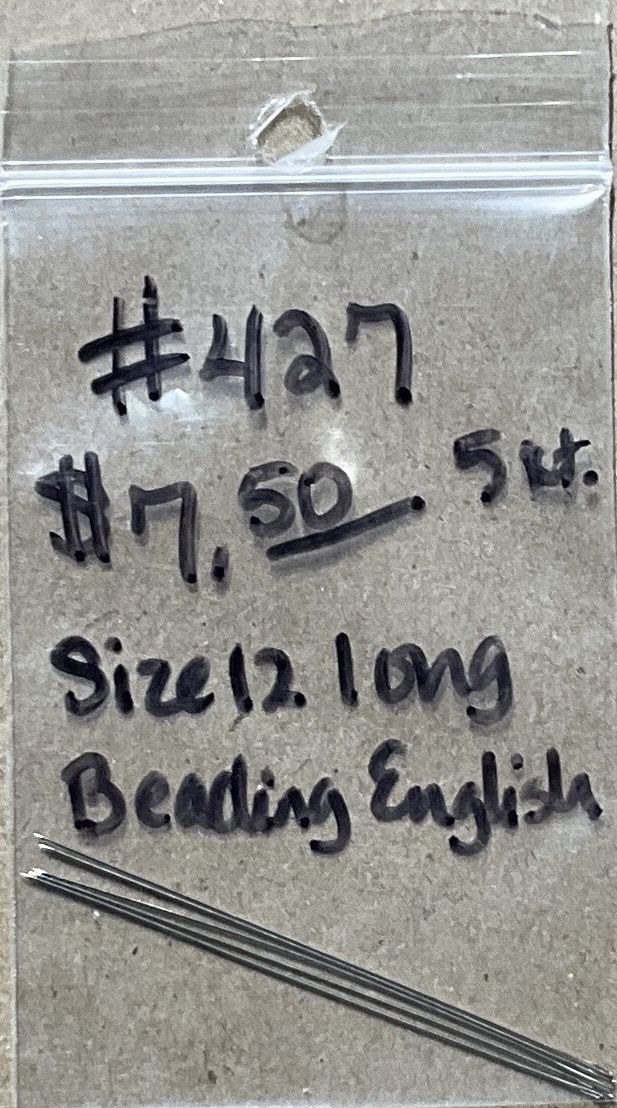 #427
$7.50 5 ct.
Size 12 long
Beading English